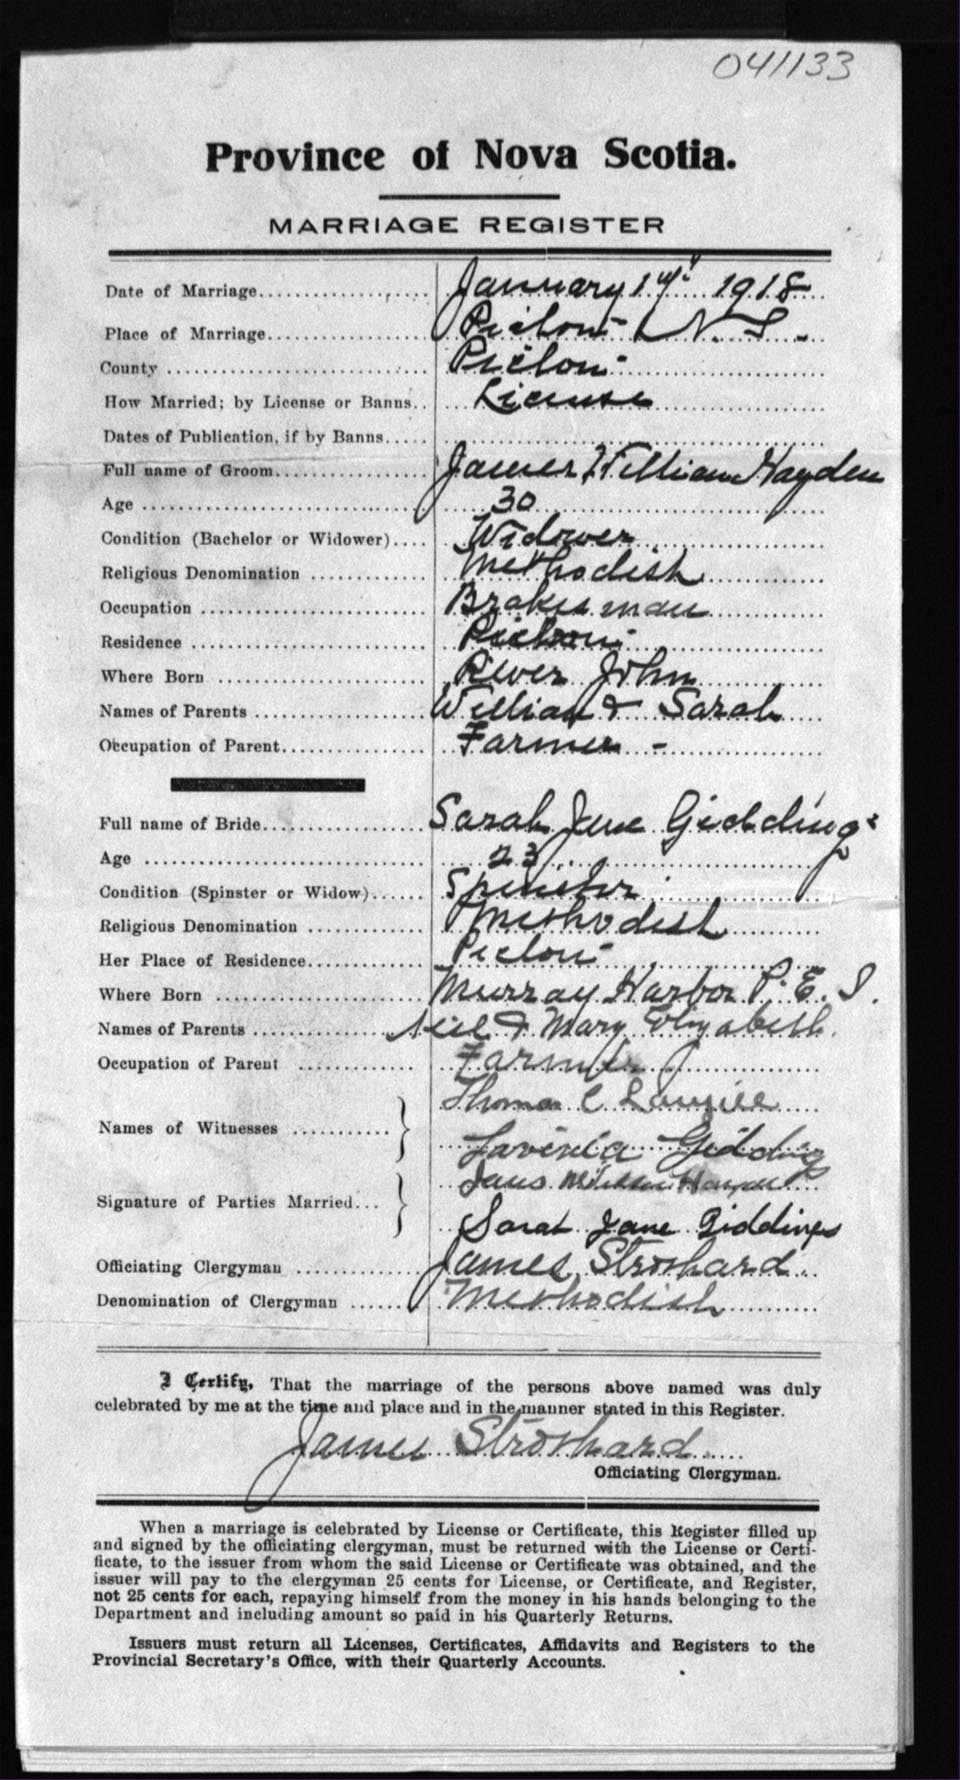 041133
Province of Nova Scotia.
MARRIAGE REGISTER
Date of Marriage January 1918
Place of Marriage Pictou N.S.
County Pictou
How Married; by License or Banns License
Dates of Publication, if by Banns
Full name of Groom James William Hayden
Age 30
Condition (Bachelor or Widower) Widower
Religious Denomination Methodist
Occupation Brakesman
Residence Pictou
Where Born River John
Names of Parents William & Sarah
Occupation of Parent Farmer -
Full name of Bride Sarah Jane Giddings
Age 23
Condition (Spinster or Widow) Spinster
Religious Denomination Methodist
Her Place of Residence Pictou
Where Born Murray Harbor P.E.I.
Names of Parents Neil & Mary Elizabeth
Occupation of Parent Farmer
Names of Witnesses Thomas C
Lavinia Gidding
Signature of Parties Married William
Sarah Jane Giddings
Officiating Clergyman James Strothard
Denomination of Clergyman Methodist
I Certify, That the marriage of the persons above named was duly
celebrated by me at the time and place and in the manner stated in this Register.
James Strothard
Officiating Clergyman.
When a marriage is celebrated by License or Certificate, this Register filled up
and signed by the officiating clergyman, must be returned with the License or Certi-
ficate, to the issuer from whom the said License or Certificate was obtained, and the
issuer will pay to the clergyman 25 cents for License, or Certificate, and Register,
not 25 cents for each, repaying himself from the money in his hands belonging to the
Department and including amount so paid in his Quarterly Returns.
Issuers must return all Licenses, Certificates, Affidavits and Registers to the
Provincial Secretary's Office, with their Quarterly Accounts.